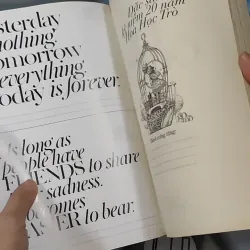 sterday
nothing.
omorrow
everything.
oday is forever.
As long as
people have
FRIENDS to share
sadness.
comes
ER to bear.
Đặc
20 năm
Hoa Học Trò